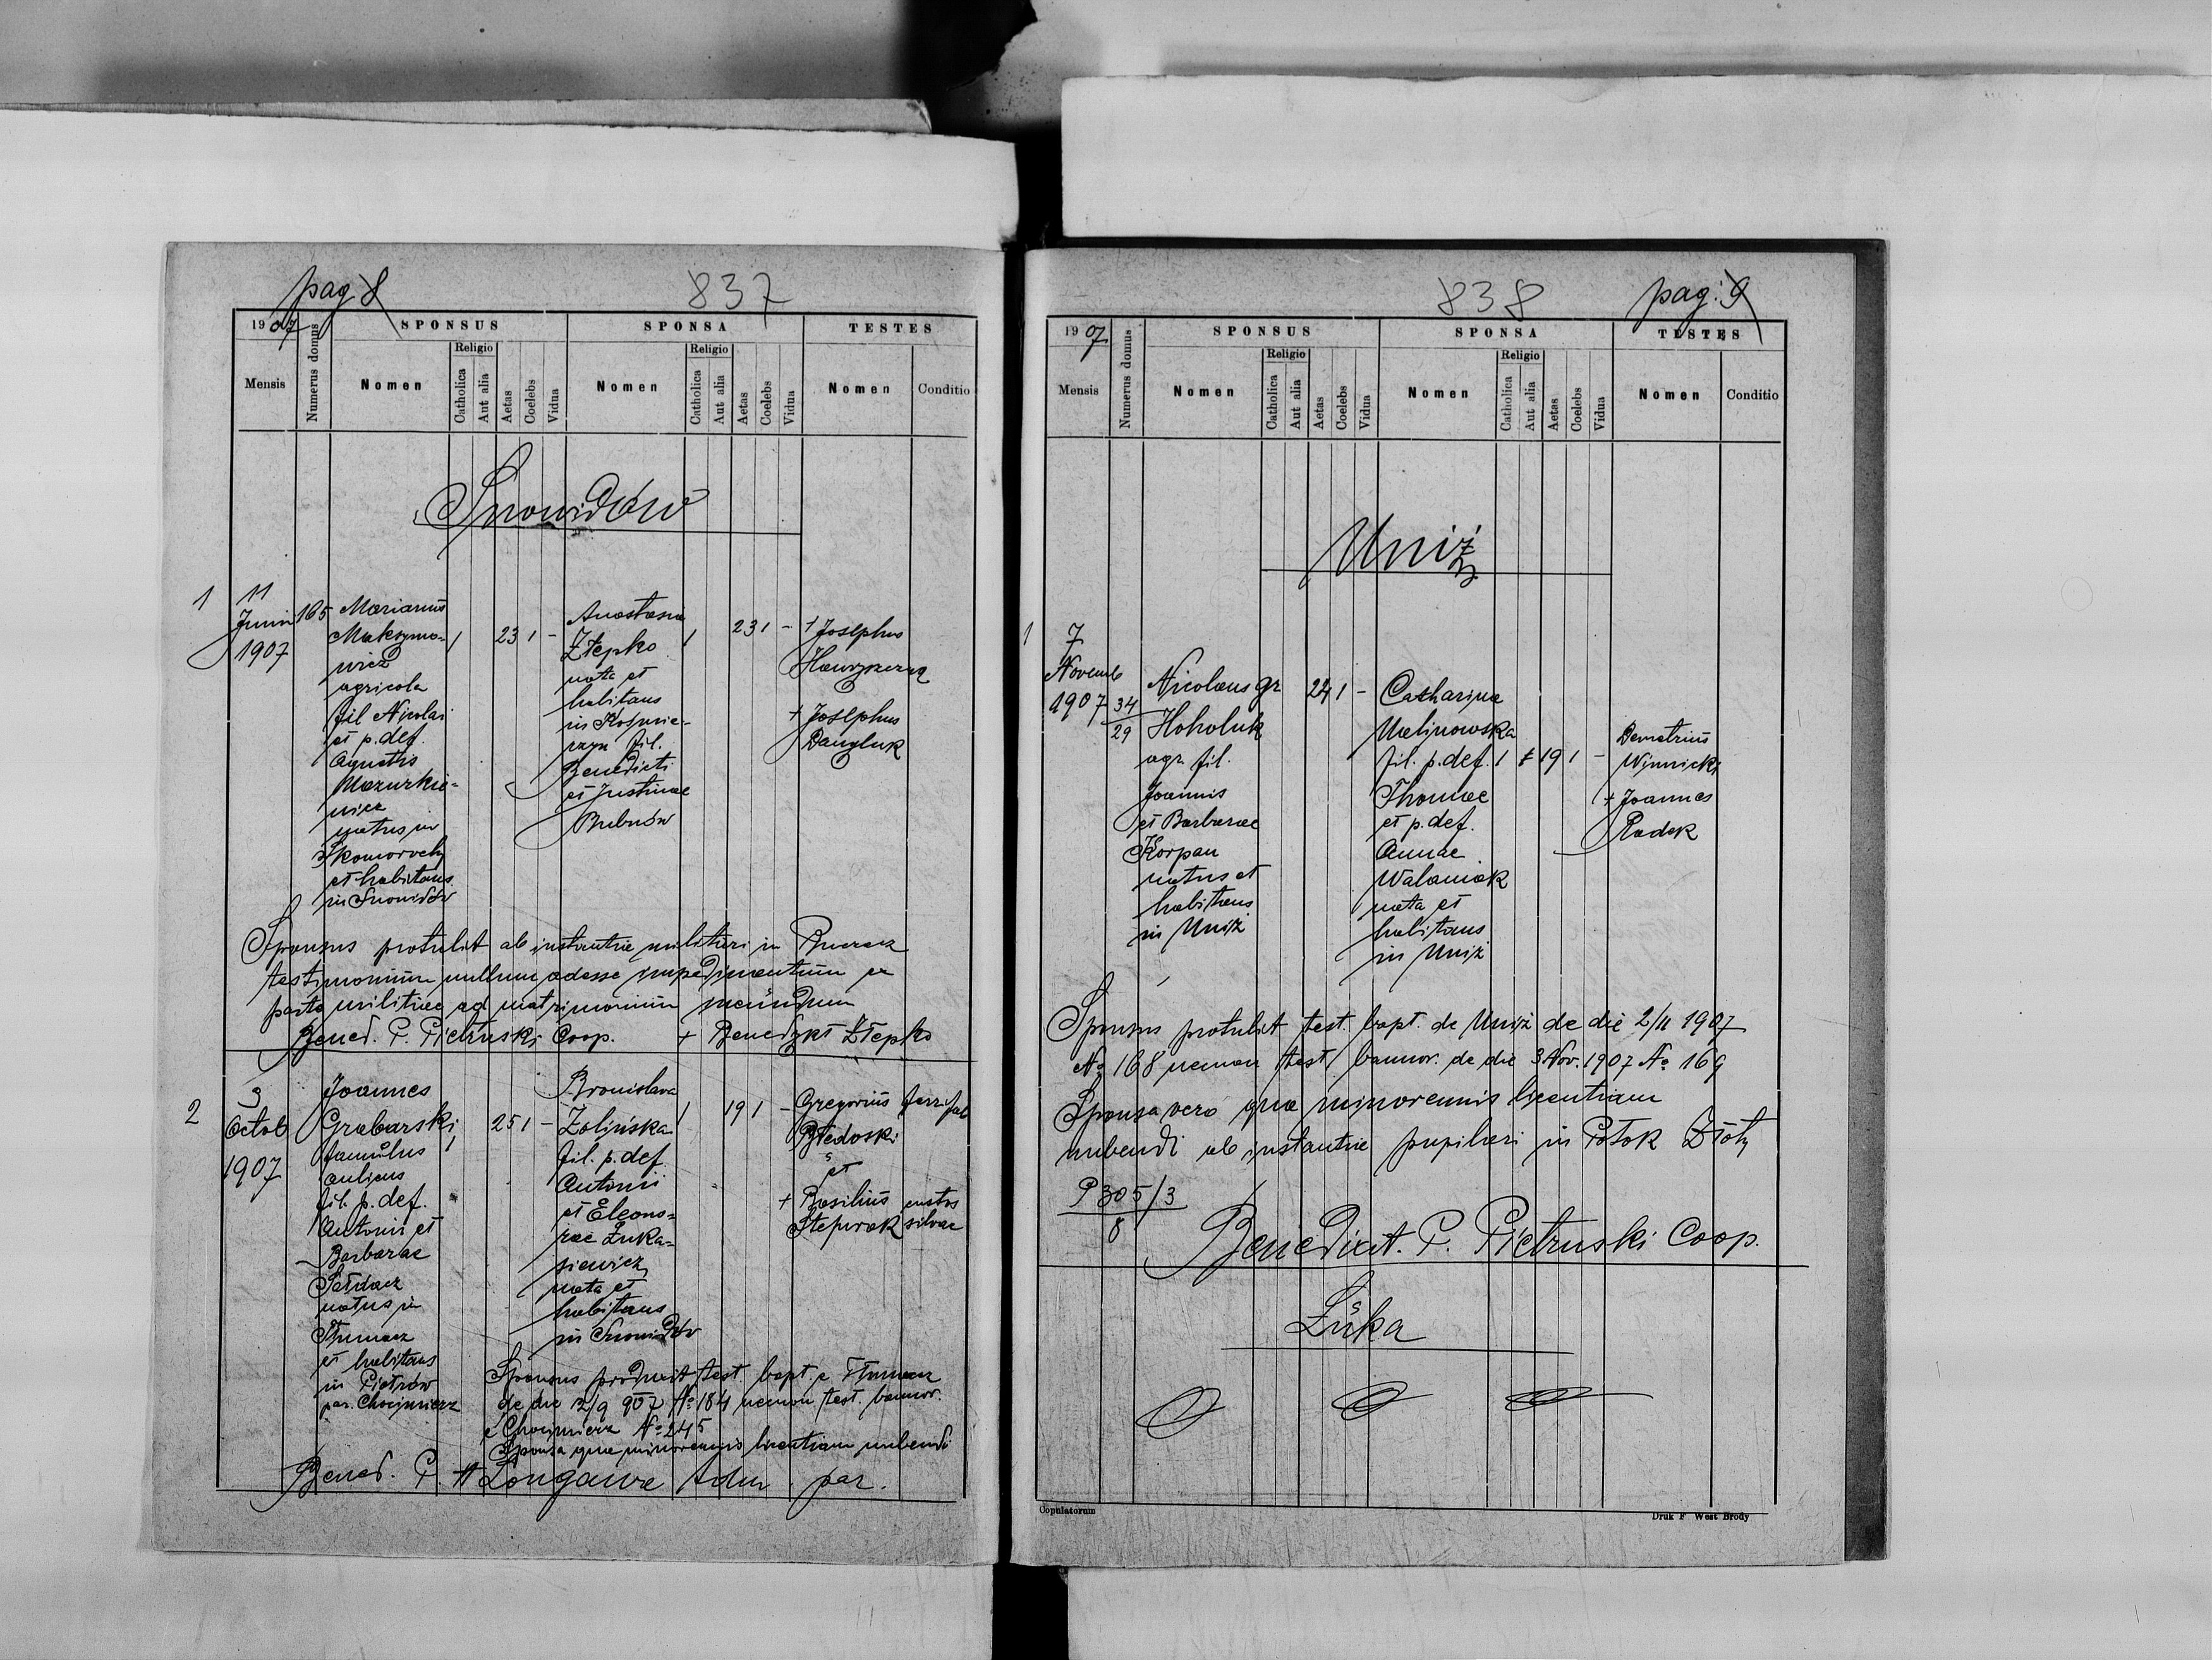 pag 8
837
1907
SPONSUS
SPONSA
TESTES
Mensis
Numerus domus
Nomen
Religio
Catholica
Aut alia
Aetas
Coelebs
Vidua
Nomen
Religio
Catholica
Aut alia
Aetas
Coelebs
Vidua
Nomen
Conditio
Snowidów
1
11
Junii
1907
165
Marianus
Maksymo-
wicz
agricola
fil Nicolai
et p. def.
Agnetis
Mazurkie-
wicz
natus in
Skomorochy
et habitans
in Snowidów
1
23 1 -
Anastasia
Złepko
nata et
habitans
in
fil.
Benedicti
et Justinae
Bubnów
1
23 1 -
+ Josephus
+ Josephus
Sponsus protulit ab instantia militari in Buczacz
testimonium nullum adesse impedimentum ex
parte militiae ad matrimonium ineundum
Bened. P. Pietruski Coop. + Benedykt Złepko
2
3
Octob
1907
Joannes
Grabarski
famulus
aulicus
fil. p. def.
Antonii et
Barbarae
natus in
Tłumacz
et habitans
in Piotrów
par. Chocimierz
1
25 1 -
Bronislava
Zolińska
fil. p. def
Antonii
et Eleono-
rae Łuka-
siewicz
nata et
habitans
in Snowidów
1
19 1 -
Gregorius
et
+ Basilius custos
silvae
Sponsus produxit test. bapt. e Tłumacz
de die 2/9 907 No 184 necnon test. bannor.
e Chocimierz No 245
Sponsa qua minorennis licentiam nubendi
Bened. P. Adm. par.
838
pag: 9
1907
SPONSUS
SPONSA
TESTES
Mensis
Numerus domus
Nomen
Religio
Catholica
Aut alia
Aetas
Coelebs
Vidua
Nomen
Religio
Catholica
Aut alia
Aetas
Coelebs
Vidua
Nomen
Conditio
Uniż
1
7
Novemb
1907
34
29
Nicolaus gr
Hoholuk
agr. fil.
Joannis
et Barbarae
Korpan
natus et
habitans
in Uniż
24 1 -
Catharina
Malinowska
fil. p. def.
Thomae
et p. def.
Annae
Walaniak
nata et
habitans
in Uniż
1
19 1 -
Demetrius
Winnicki
+ Joannes
Radek
Sponsus protulit test. bapt. de Uniż de die 2/11 1907
No 168 necnon test bannor. de die 3 Nov. 1907 No 169
Sponsa vero qua minorennis licentiam
nubendi ab instantia pupilari in Potok Złoty
P 305/3
8
Benedict. P. Pietruski Coop.
Łuka
Copulatorum
Druk F West Brody